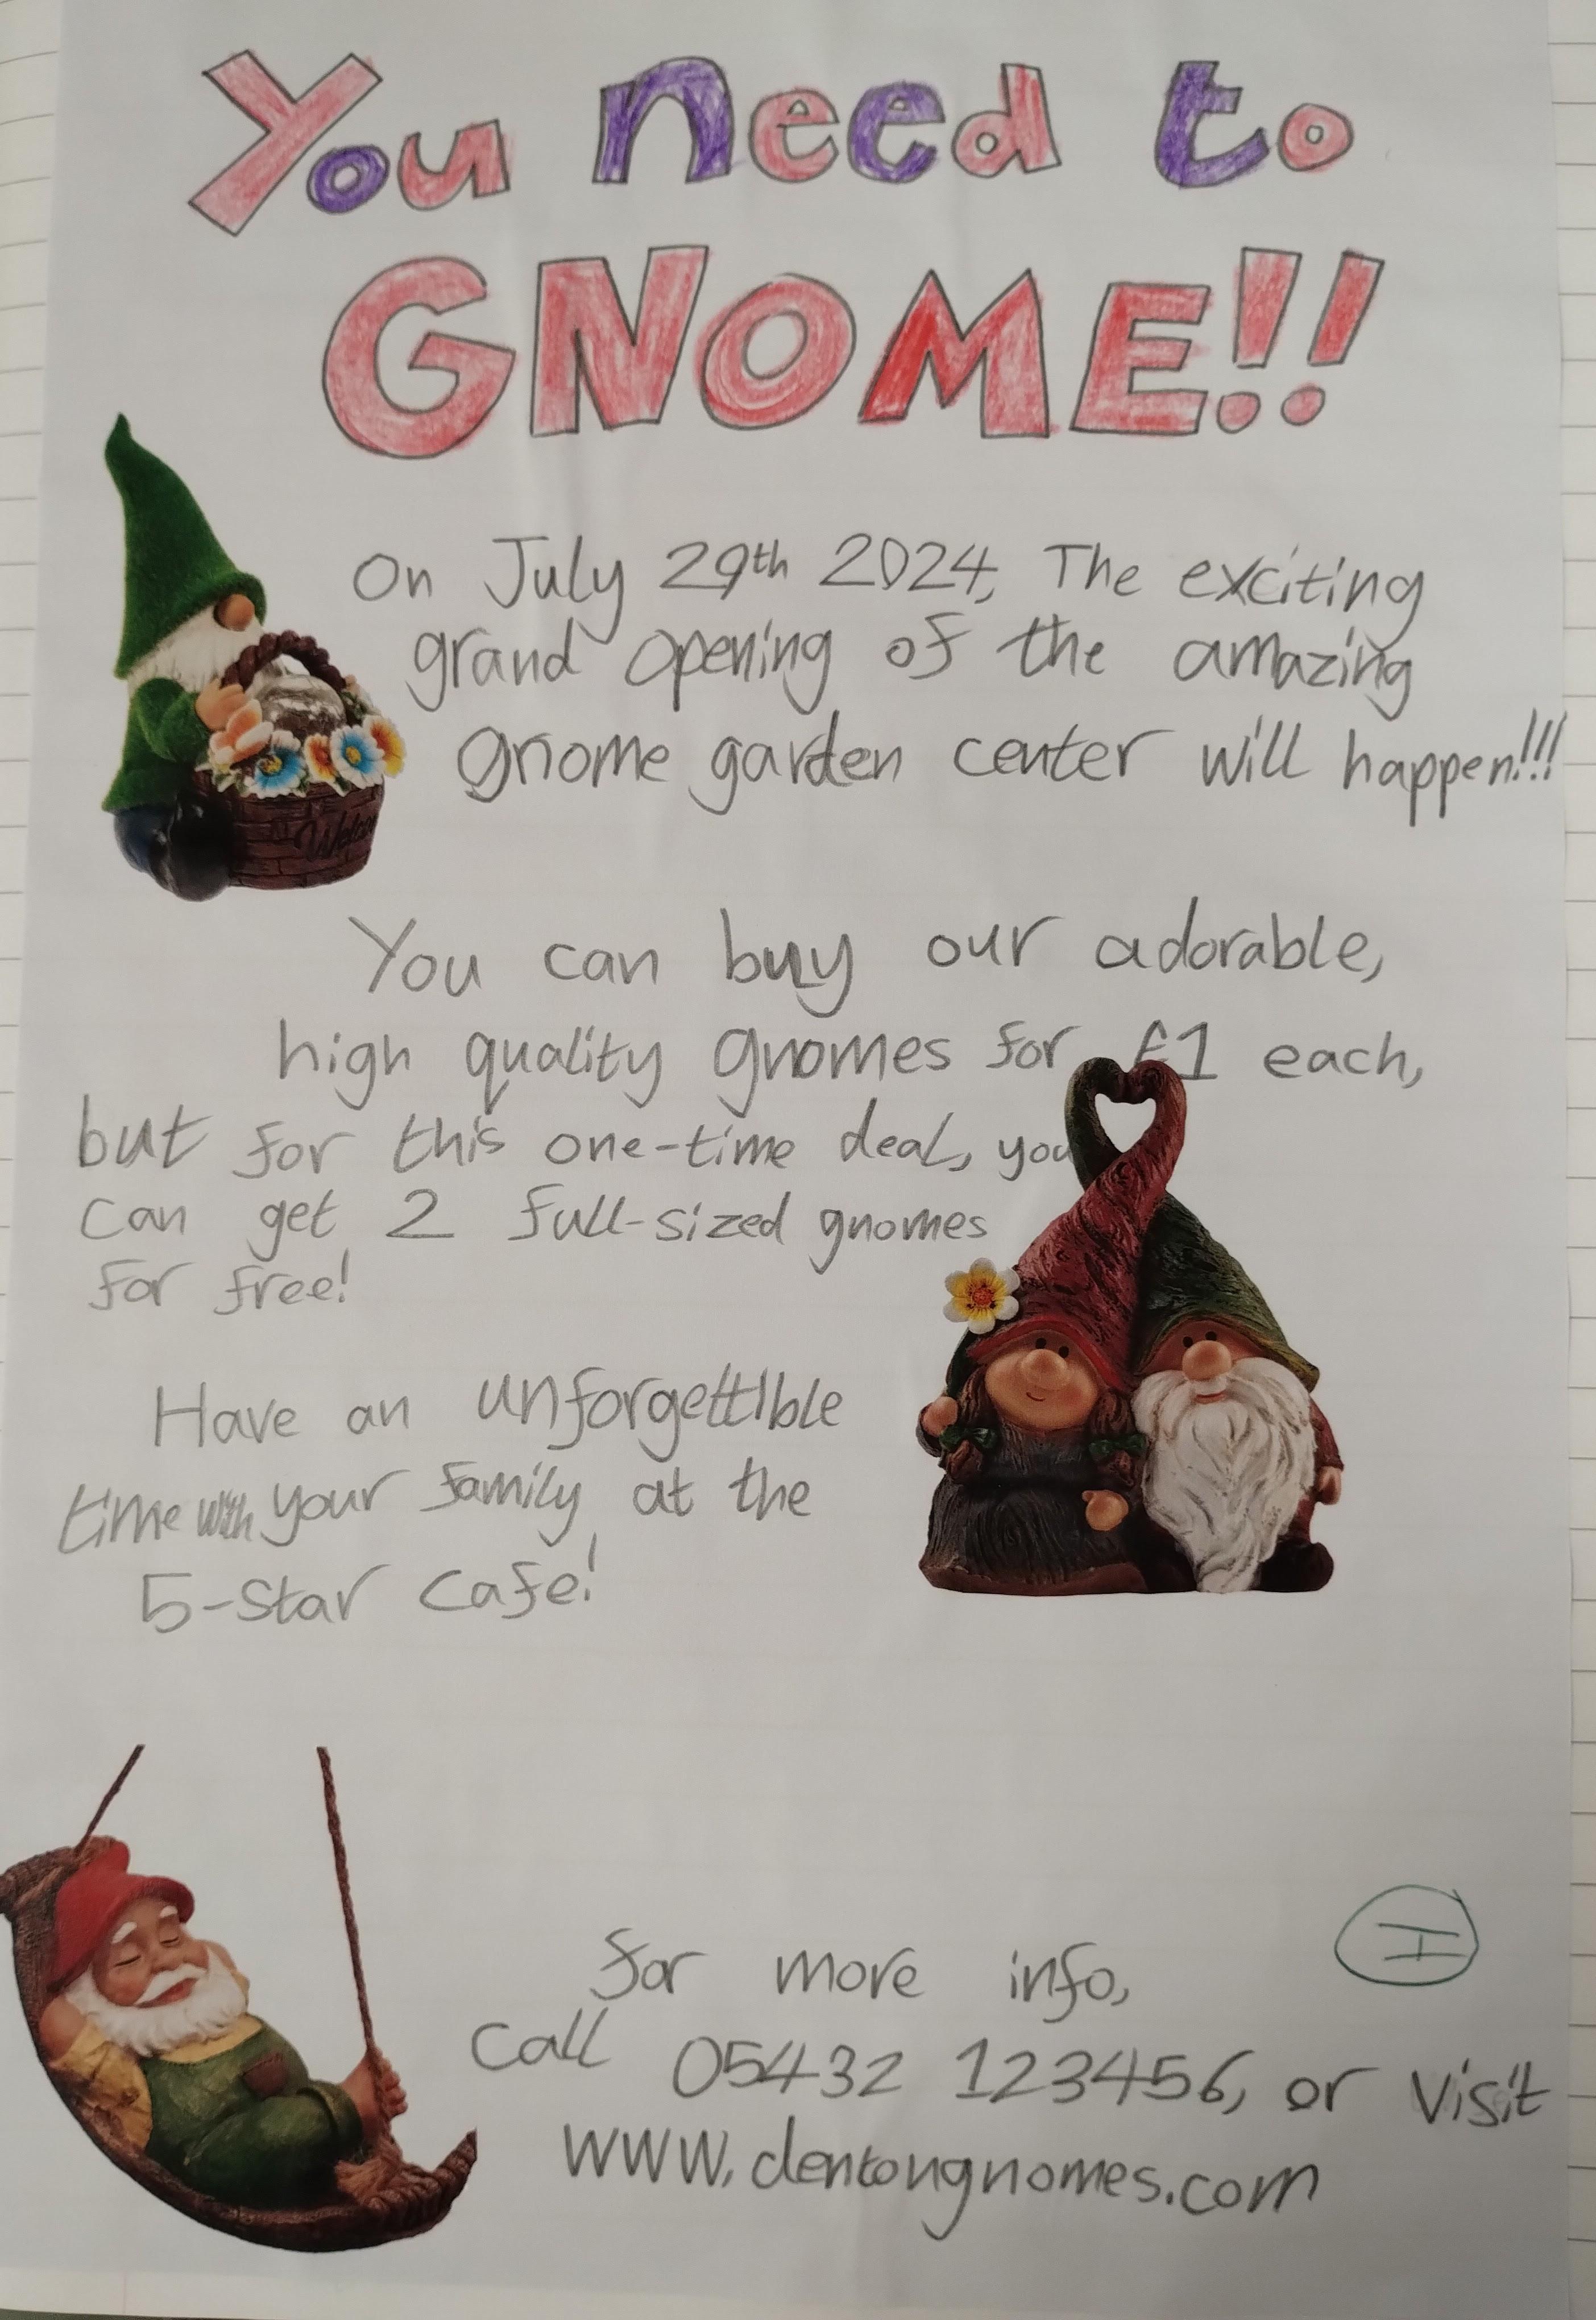 You need to
GNOME!!
On July 29th 2024, The exciting
grand opening of the amazing
gnome garden center will happen!!!
Welco
You can buy our adorable,
high quality gnomes for £1 each,
but for this one-time deal, you
can get 2 full-sized gnomes
for free!
Have an unforgettible
time with your family at the
5-star cafe!
I
for more info,
call 05432 123456, or visit
www.dentongnomes.com